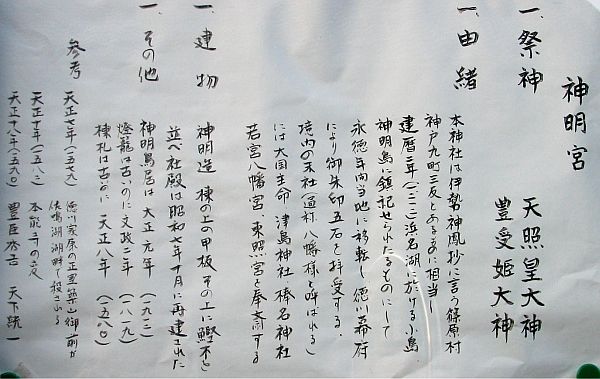 神明宮
一、祭神 天照皇大神
豊受姫大神
一、由緒
本神社は伊勢神鳳抄に言う篠原村
神戸九町三反とあるのに相当し
建暦三年(一二一三)浜名湖に於ける小島
神明島に鎮祀せられたるものにして
永徳年間当地に移転し徳川幕府
により御朱印五石を拝受する、
境内の末社(道村八幡様と呼ばれる)
には大国主命 津島神社 榛名神社
若宮八幡宮、東照宮を奉斎する
一、建物 神明造 棟の上の甲板その上に鰹木を
並べ社殿は昭和七年十月に再建された
一、その他 神明鳥居は大正元年(一九一二)
燈籠は古いのに文政二年(一八一九)
棟札は古きに天正八年(一五八〇)
参考 天正七年(一五七九) 徳川家康の正室築山御前が
佐鳴湖湖畔で殺される
天正十年(一五八二) 本能寺の変
天正十八年(一五九〇) 豊臣秀吉 天下統一